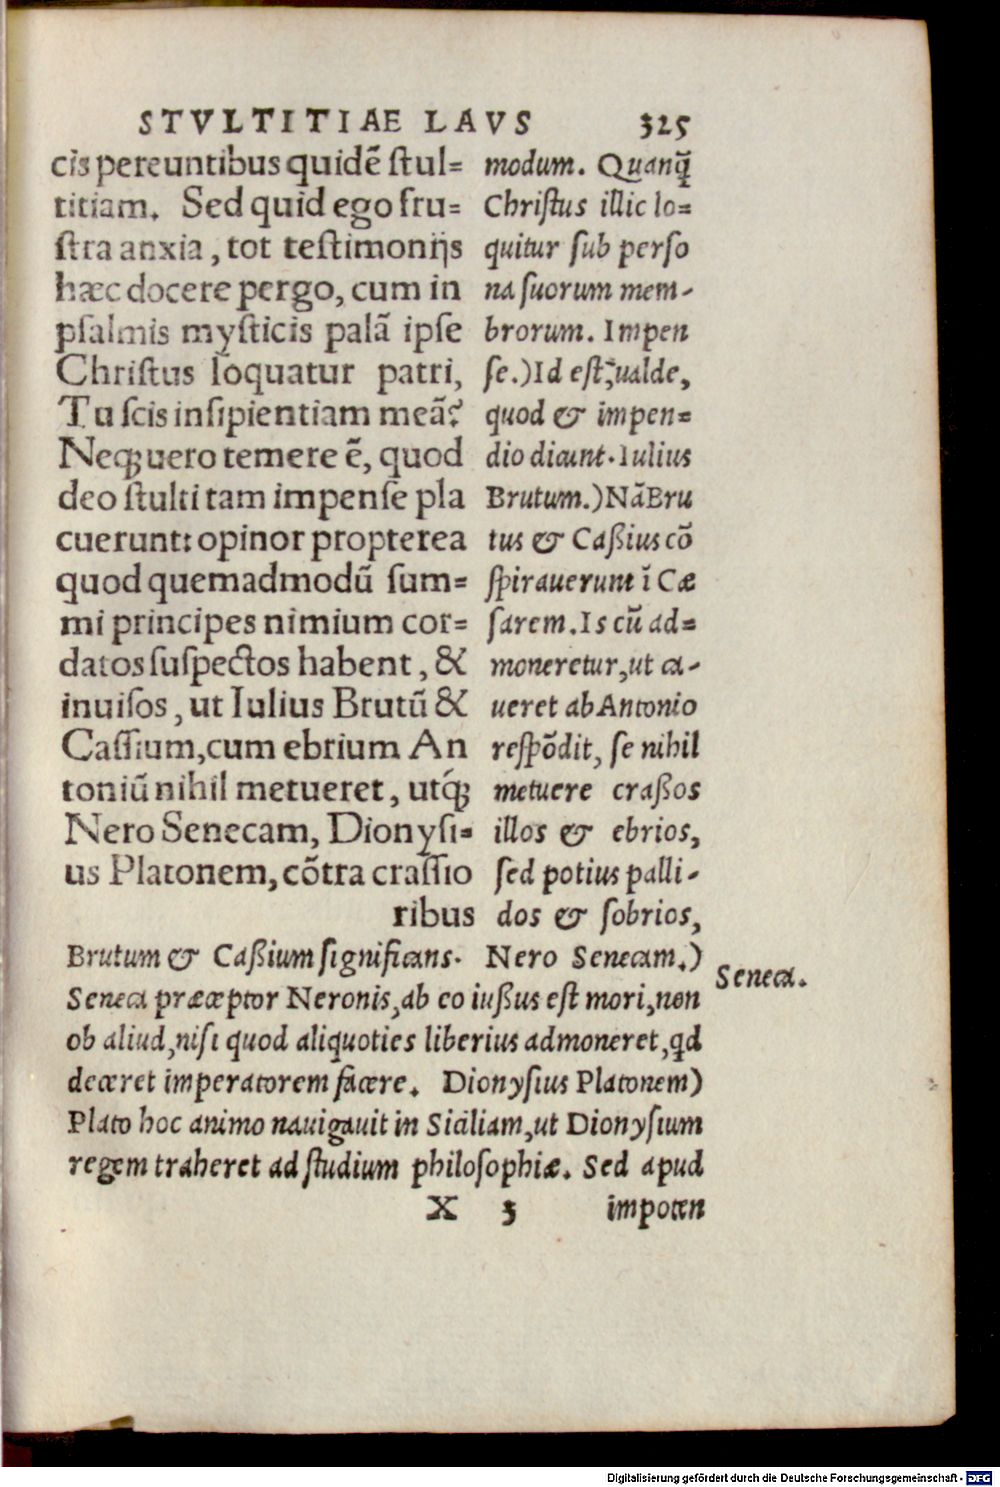 STVLTITIAE LAVS 325
cis pereuntibus quidē ſtul=
titiam. Sed quid ego fru=
ſtra anxia, tot teſtimonijs
hæc docere pergo, cum in
pſalmis myſticis palā ipſe
Chriſtus loquatur patri,
Tu ſcis inſipientiam meā?
Neq; uero temere ē, quod
deo ſtulti tam impenſe pla
cuerunt: opinor propterea
quod quemadmodū ſum=
mi principes nimium cor=
datos ſuſpectos habent, &
inuiſos, ut Iulius Brutū &
Caſſium, cum ebrium An
toniū nihil metueret, utq́;
Nero Senecam, Dionyſi=
us Platonem, cōtra craſſio
ribus
modum. Quanq̃
Chriſtus illic lo=
quitur ſub perſo
na ſuorum mem-
brorum. Impen
ſe.) Id eſt, ualde,
quod & impen=
dio dicunt. Iulius
Brutum.) Nā Bru
tus & Caßius cō
ſpirauerunt ī Cæ
ſarem. Is cū ad=
moneretur, ut ca-
ueret ab Antonio
reſpōdit, ſe nihil
metuere craßos
illos & ebrios,
ſed potius palli-
dos & ſobrios,
Brutum & Caßium ſignificans. Nero Senecam.)
Seneca.
Seneca præceptor Neronis, ab eo iußus eſt mori, non
ob aliud, niſi quod aliquoties liberius admoneret, qd
deceret imperatorem facere. Dionyſius Platonem)
Plato hoc animo nauigauit in Siciliam, ut Dionyſium
regem traheret ad ſtudium philoſophiæ. Sed apud
X 3 impoten
Digitalisierung gefördert durch die Deutsche Forschungsgemeinschaft - DFG